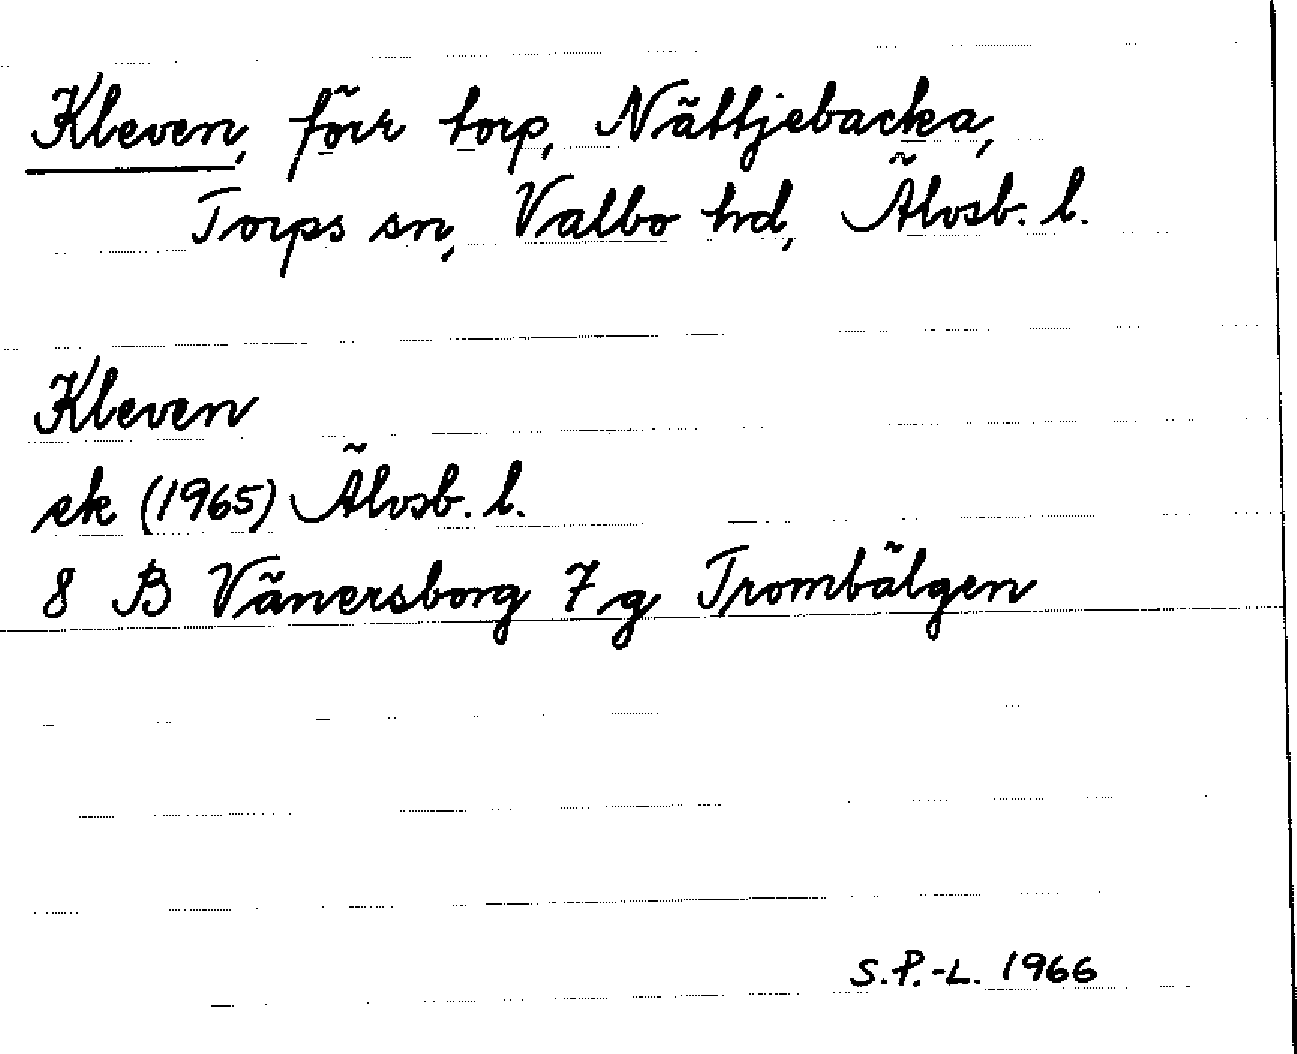 Kleven, förr torp, Nättjebacka,
Torps sn, Valbo hd, Älvsb. l.
Kleven
ek (1965) Älvsb. l.
8 B Vänersborg 7 g Trombälgen
S.P.-L. 1966